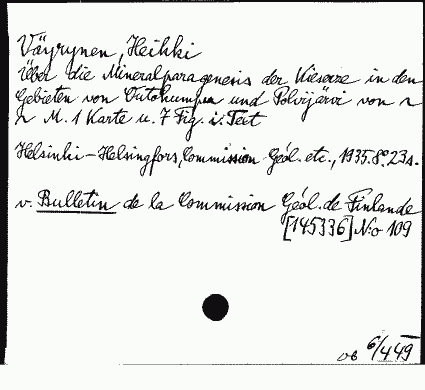 Väyrynen, Heikki
Über die Mineralparagenesis der Kieserze in den
Gebieten von Outokumpu und Polvijärvi von
M. 1 Karte u. 7 Fig. i. Text
Helsinki-Helsingfors, Commission Géol. etc., 1935. 8° 23 s.
v. Bulletin de la Commission Géol. de Finlande
[145336] N:o 109
6/4 49